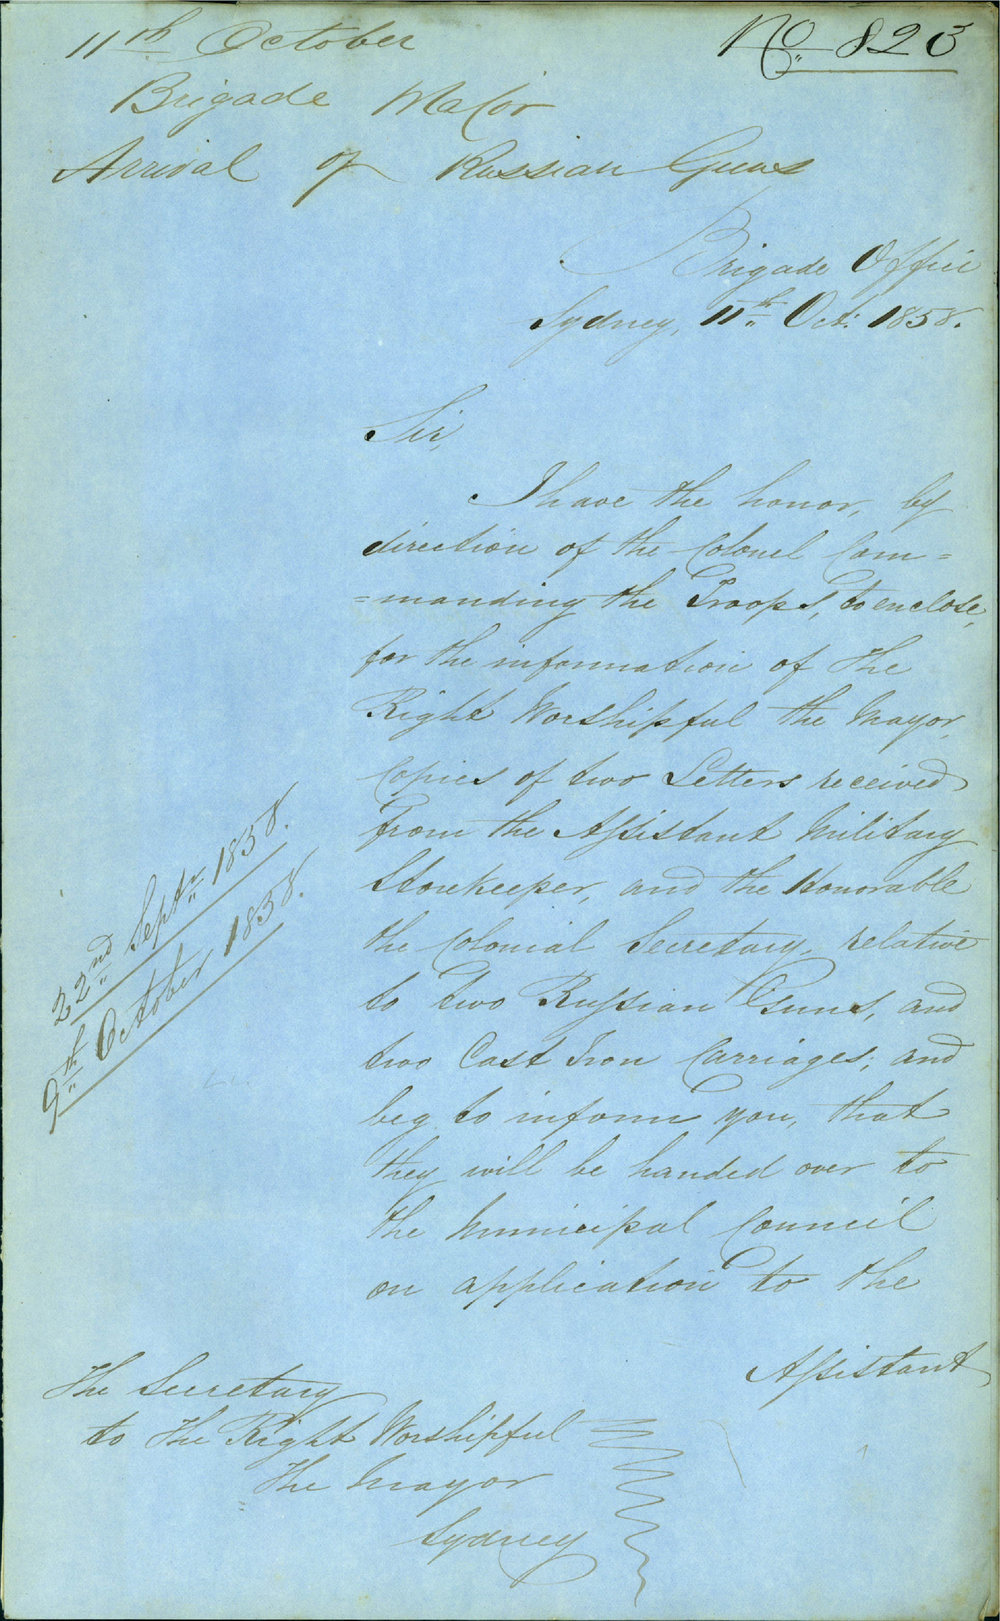 11th October
No. 823
Brigade Major
Arrival of Russian Guns
Brigade Office
Sydney, 11th Oct: 1858.
Sir,
I have the honor, by
direction of the Colonel Com=
=manding the Troops, to enclose,
for the information of The
Right Worshipful the Mayor,
Copies of two Letters received
from the Assistant Military
Storekeeper, and the Honorable
the Colonial Secretary, relative
to two Russian Guns, and
two Cast Iron Carriages; and
beg to inform you, that
they will be handed over to
the Municipal Council
on application to the
Assistant
22nd Septr 1858.
9th October 1858.
The Secretary
to The Right Worshipful
The Mayor
Sydney